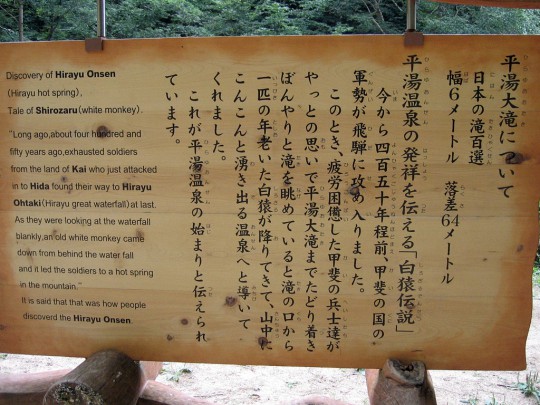 平湯大滝について
日本の滝百選
幅6メートル　落差64メートル
平湯温泉の発祥を伝える「白猿伝説」
今から四百五十年程前、甲斐の国の
軍勢が飛騨に攻め入りました。
このとき、疲労困憊した甲斐の兵士達が
やっとの思いで平湯大滝までたどり着き
ぼんやりと滝を眺めていると滝の口から
一匹の年老いた白猿が降りてきて、山中に
こんこんと湧き出る温泉へと導いて
くれました。
これが平湯温泉の始まりと伝えられ
ています。
Discovery of Hirayu Onsen
(Hirayu hot spring),
Tale of Shirozaru(white monkey).
"Long ago,about four hundred and
fifty years ago,exhausted soldiers
from the land of Kai who just attacked
in to Hida found their way to Hirayu
Ohtaki(Hirayu great waterfall)at last.
As they were looking at the waterfall
blankly,an old white monkey came
down from behind the water fall
and it led the soldiers to a hot spring
in the mountain."
It is said that that was how people
discoverd the Hirayu Onsen.